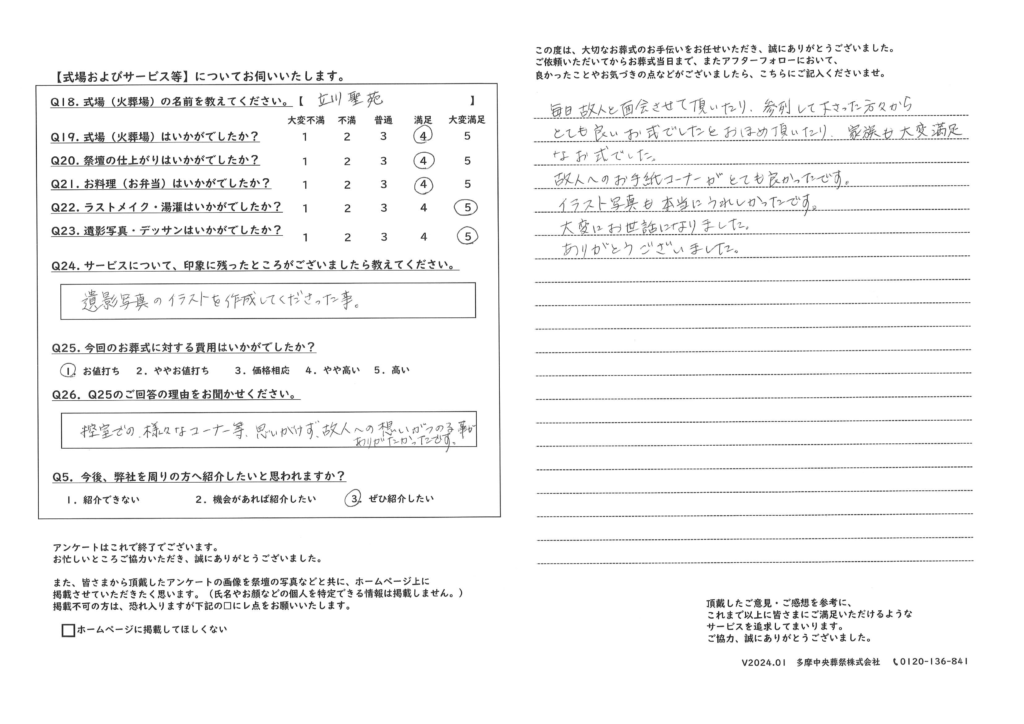 【式場およびサービス等】についてお伺いいたします。
Q18. 式場（火葬場）の名前を教えてください。【 立川聖苑 】
大変不満 不満 普通 満足 大変満足
Q19. 式場（火葬場）はいかがでしたか？ 1 2 3 4 5
Q20. 祭壇の仕上がりはいかがでしたか？ 1 2 3 4 5
Q21. お料理（お弁当）はいかがでしたか？ 1 2 3 4 5
Q22. ラストメイク・湯灌はいかがでしたか？ 1 2 3 4 5
Q23. 遺影写真・デッサンはいかがでしたか？ 1 2 3 4 5
Q24. サービスについて、印象に残ったところがございましたら教えてください。
遺影写真のイラストを作成してくださった事。
Q25. 今回のお葬式に対する費用はいかがでしたか？
1. お値打ち 2. ややお値打ち 3. 価格相応 4. やや高い 5. 高い
Q26. Q25のご回答の理由をお聞かせください。
控室での、様々なコーナー等、思いがけず、故人への想いがつのる事が
ありがたかったです。
Q5. 今後、弊社を周りの方へ紹介したいと思われますか？
1. 紹介できない 2. 機会があれば紹介したい 3. ぜひ紹介したい
アンケートはこれで終了でございます。
お忙しいところご協力いただき、誠にありがとうございました。
また、皆さまから頂戴したアンケートの画像を祭壇の写真などと共に、ホームページ上に
掲載させていただきたく思います。（氏名やお顔などの個人を特定できる情報は掲載しません。）
掲載不可の方は、恐れ入りますが下記の□にレ点をお願いいたします。
□ホームページに掲載してほしくない
この度は、大切なお葬式のお手伝いをお任せいただき、誠にありがとうございました。
ご依頼いただいてからお葬式当日まで、またアフターフォローにおいて、
良かったことやお気づきの点などがございましたら、こちらにご記入くださいませ。
毎日故人と面会させて頂いたり、参列して下さった方々から
とても良いお式でしたとおほめ頂いたり、家族も大変満足
なお式でした。
故人へのお手紙コーナーがとても良かったです。
イラスト写真も本当にうれしかったです。
大変にお世話になりました。
ありがとうございました。
頂戴したご意見・ご感想を参考に、
これまで以上に皆さまにご満足いただけるような
サービスを追求してまいります。
ご協力、誠にありがとうございました。
V2024.01 多摩中央葬祭株式会社 📞0120-136-841